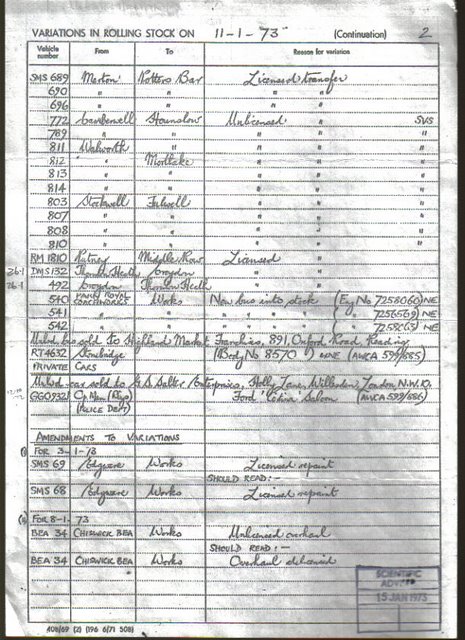 VARIATIONS IN ROLLING STOCK ON 11-1-73 (Continuation) 2
Vehicle number From To Reason for variation
SMS 689 Merton Potters Bar Licensed transfer
690 " " " "
696 " " " "
772 Camberwell Hounslow Unlicensed " SVS
789 " " " " "
811 Walworth " " " "
812 " Mortlake " " "
813 " " " " "
814 " " " " "
803 Stockwell Fulwell " " "
807 " " " " "
808 " " " " "
810 " " " " "
RM 1810 Putney Middle Row Licensed "
26.1 DMS 132 Thornton Heath Croydon " "
26.1 492 Croydon Thornton Heath " "
540 PARK ROYAL COACHWORKS Works New bus into stock (Eng No 7258060) NE
541 " " " " " " ( " 7256569) NE
542 " " " " " " ( " 7258063) NE
Unlcd bus sold to Highland Market Franchise, 891, Oxford Road, Reading
RT4632 Stonebridge (Body No 8570) NNE (AWCA 599/885)
PRIVATE CARS
Unlcd car sold to G.S. Salter Enterprises, Holly Lane, Willesden, London, N.W.10.
GGO932J Op. Man (Rlys) Ford 'Cortina' Saloon (AWCA 599/886)
(POLICE DEPT)
AMENDMENTS TO VARIATIONS
FOR 3-1-73
SMS 69 Edgware Works Licensed repaint
SHOULD READ:-
SMS 68 Edgware Works Licensed repaint
FOR 8-1-73
BEA 34 CHISWICK BEA Works Unlicensed overhaul
SHOULD READ:-
BEA 34 CHISWICK BEA Works Overhaul delicensed
SCIENTIFIC
ADVISER
15 JAN 1973
408/69 (2) (196 6/71 508)